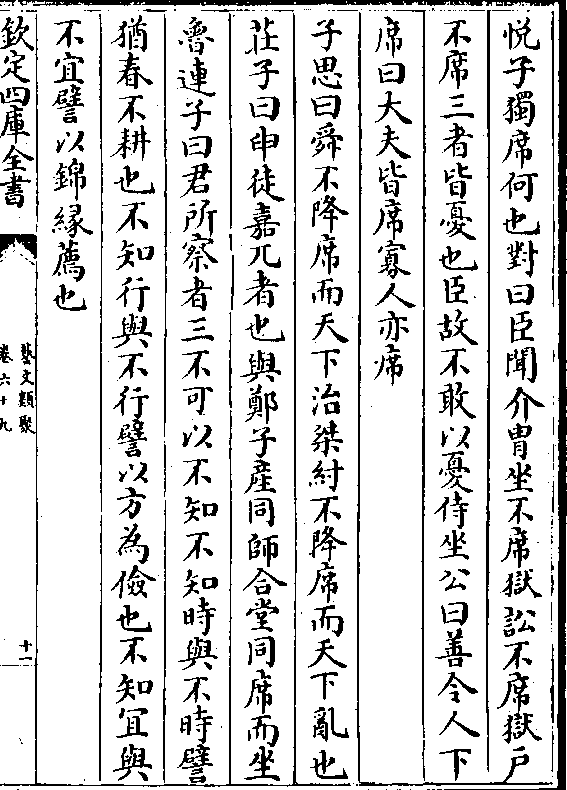 悦子獨席何也對曰臣聞介胄坐不席獄訟不席獄戶
不席三者皆憂也臣故不敢以憂侍坐公曰善令人下
席曰大夫皆席寡人亦席
子思曰舜不降席而天下治桀紂不降席而天下亂也
莊子曰申徒嘉兀者也與鄭子產同師合堂同席而坐
魯連子曰君所察者三不可以不知不知時與不時譬
猶春不耕也不知行與不行譬以方為儉也不知宜與
不宜譬以錦緣薦也
欽定四庫全書
藝文類聚
卷六十九
十一